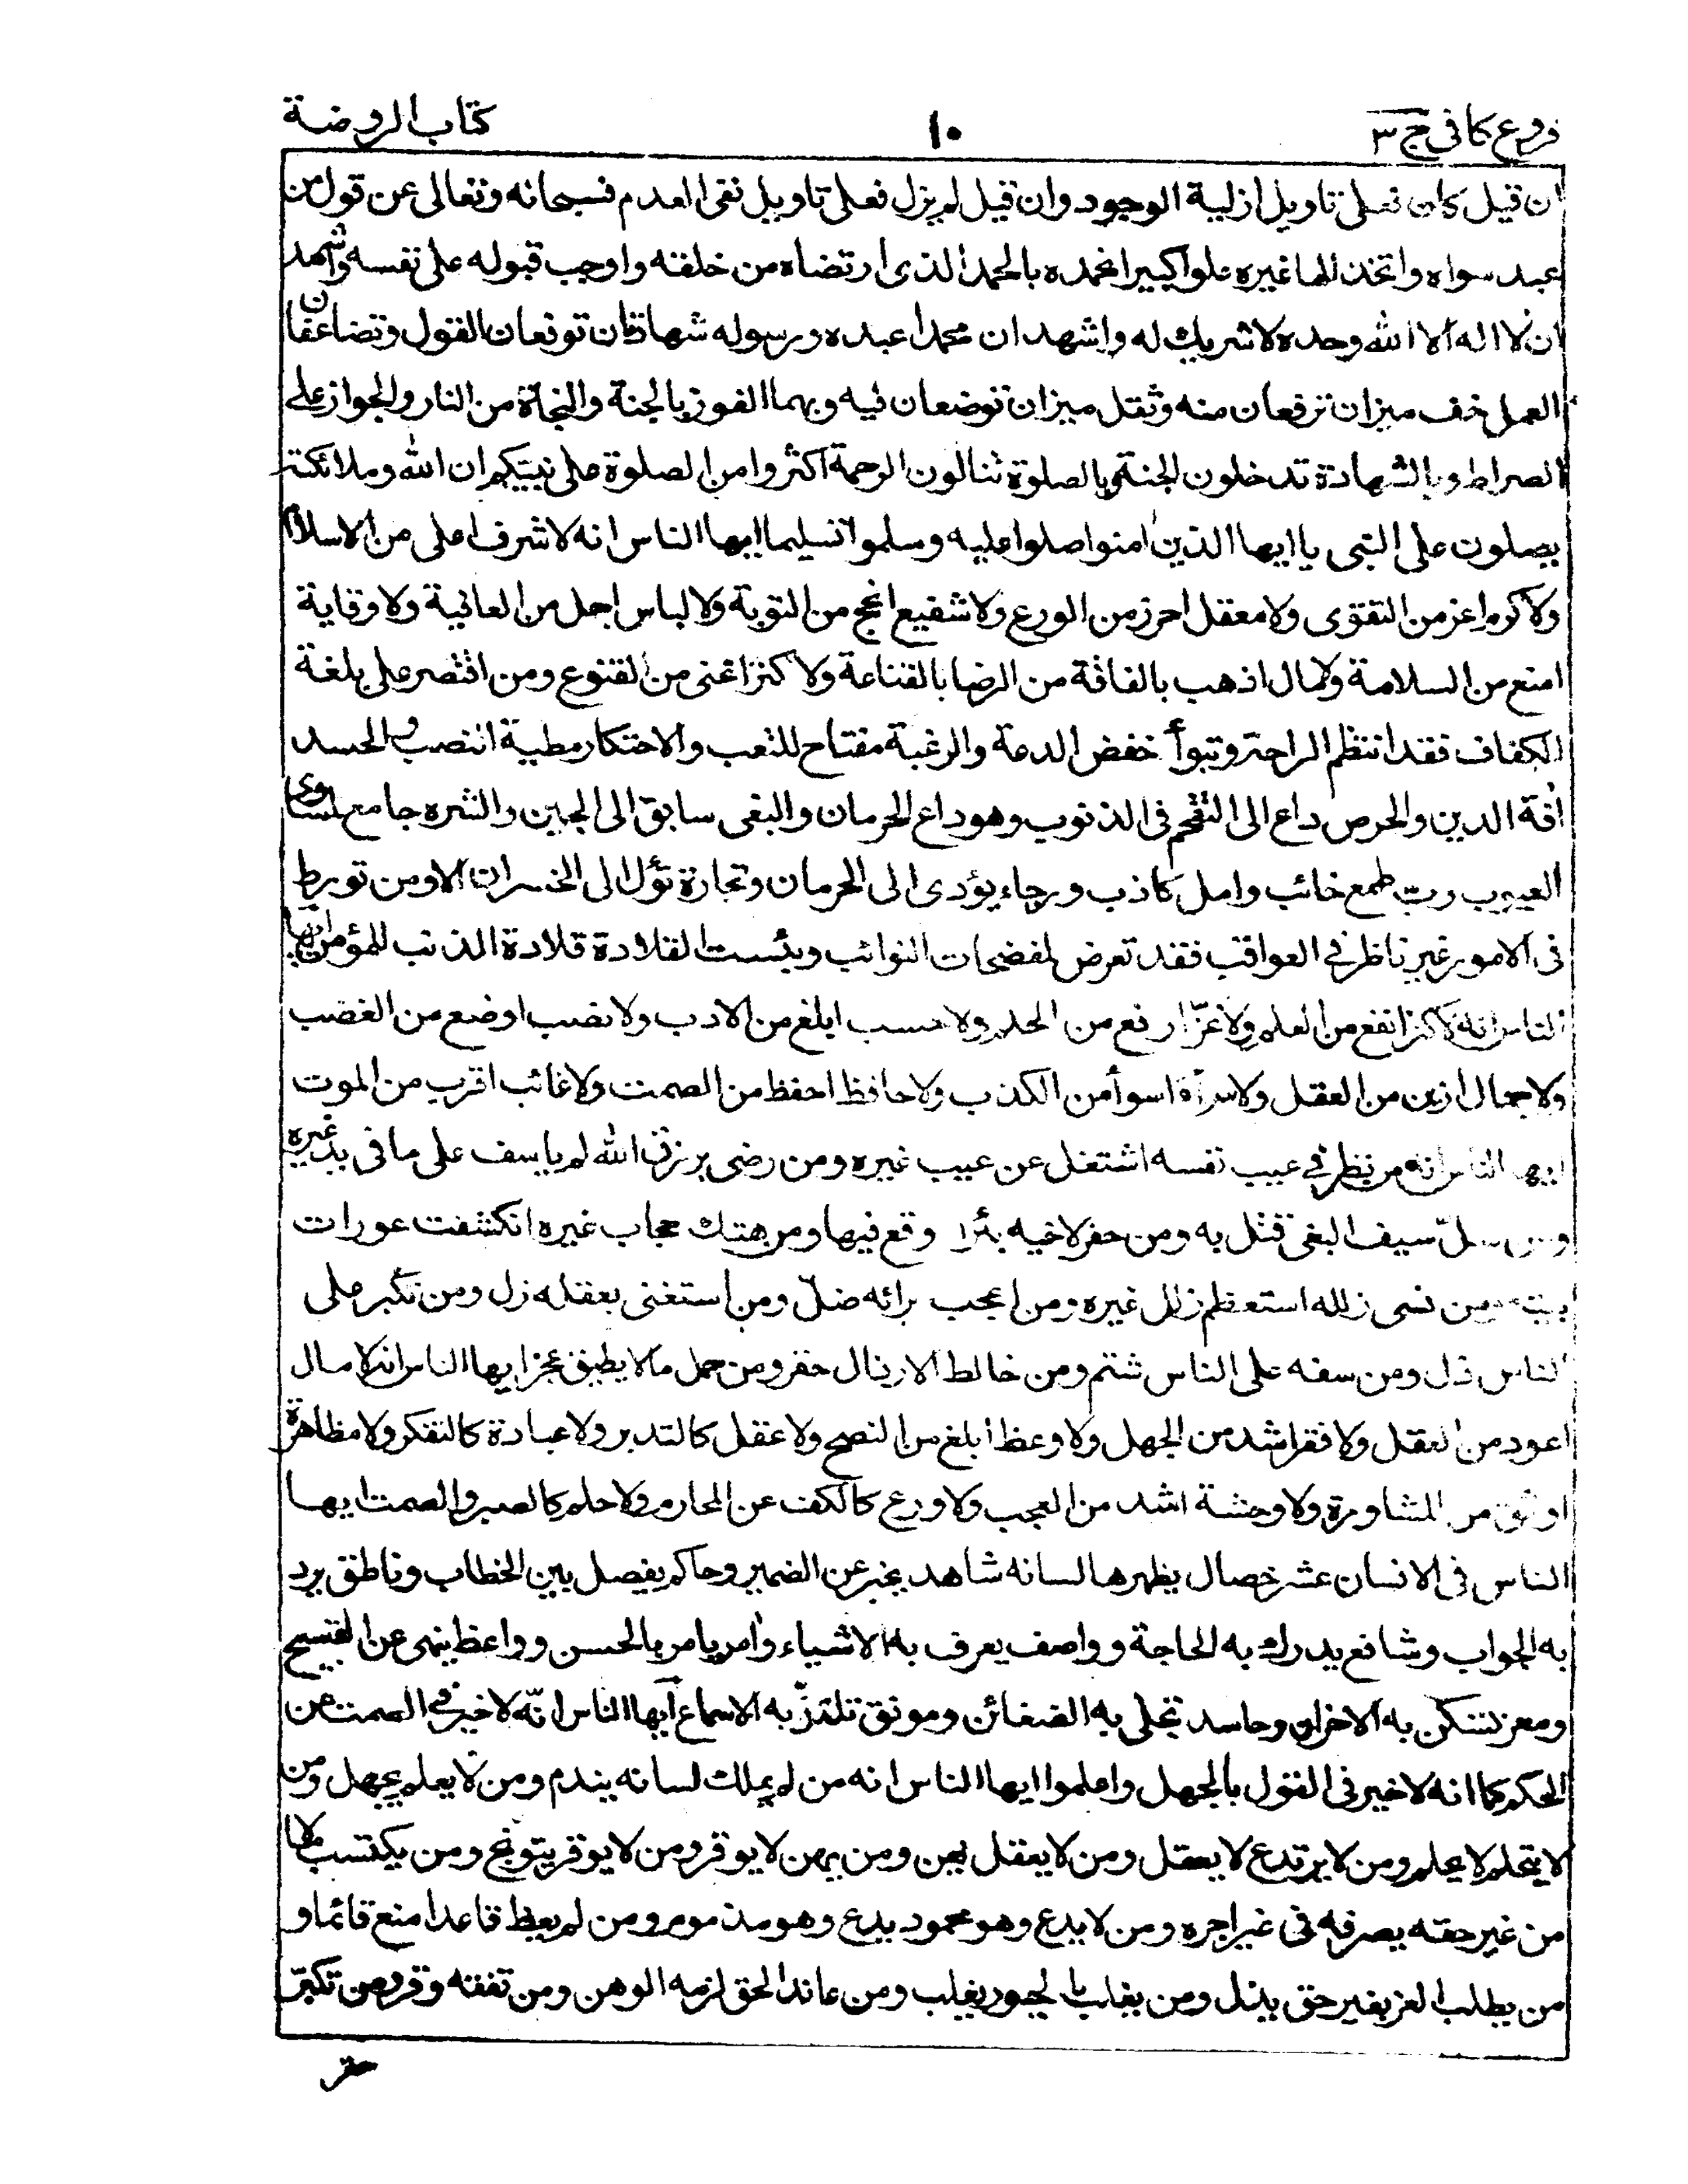 فروع كافى ج ٣
١٠
كتاب الروضة
ان قيل كان فعلى تاويل ازلية الوجود وان قيل لم يزل فعلى تاويل نفى العدم فسبحانه وتعالى عن قول من
عبد سواه واتخذ الها غيره علوا كبيرا نحمده بالحمد الذى ارتضاه من خلقه واوجب قبوله على نفسه واشهد
ان لا اله الا الله وحده لا شريك له واشهد ان محمدا عبده ورسوله شهادتان توفعان القول وتضاعفان
العمل خف ميزان ترفعان منه وثقل ميزان توضعان فيه وبهما الفوز بالجنة والنجاة من النار والجواز على
الصراط وبالشهادة تدخلون الجنة وبالصلوة تنالون الرحمة اكثروا من الصلوة على نبيكم ان الله وملائكته
يصلون على النبى يا ايها الذين امنوا صلوا عليه وسلموا تسليما ايها الناس انه لا شرف اعلى من الاسلام
ولا كرم اعز من التقوى ولا معقل احرز من الورع ولا شفيع انجح من التوبة ولا لباس اجمل من العافية ولا وقاية
امنع من السلامة ولا مال اذهب بالفاقة من الرضا بالقناعة ولا كنز اغنى من القنوع ومن اقتصر على بلغة
الكفاف فقد انتظم الراحة وتبوأ خفض الدعة والرغبة مفتاح للتعب والاحتكار مطية النصب والحسد
افة الدين والحرص داع الى التقحم فى الذنوب وهو داع الحرمان والبغى سابق الى الحين والشره جامع لمساوى
العيوب ربّ طمع خائب وامل كاذب ورجاء يؤدى الى الحرمان وتجارة تؤل الى الخسران الا ومن تورط
فى الامور غير ناظر فى العواقب فقد تعرض لمفضحات النوائب وبئست القلادة قلادة الذنب للمؤمن ايها
الناس انه لا كنز انفع من العلم ولا عزّ ارفع من الحلم ولا حسب ابلغ من الادب ولا نصب اوضع من الغضب
ولا جمال ازين من العقل ولا سوأة اسوأ من الكذب ولا حافظ احفظ من الصمت ولا غائب اقرب من الموت
ايها الناس انه من نظر فى عيب نفسه اشتغل عن عيب غيره ومن رضى برزق الله لم ياسف على ما فى يد غيره
ومن سلّ سيف البغى قتل به ومن حفر لاخيه بئرا وقع فيها ومن هتك حجاب غيره انكشفت عورات
بيته ومن نسى زلله استعظم زلل غيره ومن اعجب برائه ضلّ ومن استغنى بعقله زل ومن تكبر على
الناس ذل ومن سفه على الناس شتم ومن خالط الارذال حقر ومن حمل ما لا يطيق عجز ايها الناس انه لا مال
اعود من العقل ولا فقر اشد من الجهل ولا وعظ ابلغ من النصح ولا عقل كالتدبر ولا عبادة كالتفكر ولا مظاهرة
اوثق من المشاورة ولا وحشة اشد من العجب ولا ورع كالكف عن المحارم ولا حلم كالصبر والصمت ايها
الناس فى الانسان عشر خصال يظهرها لسانه شاهد يخبر عن الضمير وحاكم يفصل بين الخطاب وناطق يرد
به الجواب وشافع يدرك به الحاجة وواصف يعرف به الاشياء وامر يامر بالحسن وواعظ ينهى عن القبيح
ومعز تسكن به الاحزان وحاسد تجلى به الضغائن ومونق تلتذّ به الاسماع ايها الناس انّه لا خير فى الصمت عن
الحكم كما انه لا خير فى القول بالجهل واعلموا ايها الناس انه من لم يملك لسانه يندم ومن لا يعلم يجهل ومن
لا يتحلم لا يحلم ومن لا يرتدع لا يعقل ومن لا يعقل يهن ومن يهن لا يوقر ومن لا يوقر يتوبخ ومن يكتسب مالا
من غير حقه يصرفه فى غير اجره ومن لا يدع وهو محمود يدع وهو مذموم ومن لم يعط قاعدا منع قائما و
من يطلب العز بغير حق يذل ومن يغلب بالجور يغلب ومن عاند الحق لزمه الوهن ومن تفقه وقر ومن تكبّر
حقر